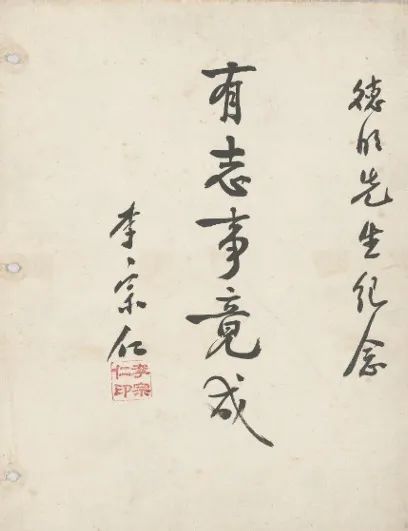 德明先生紀念
有志事竟成
李宗仁
李宗仁印